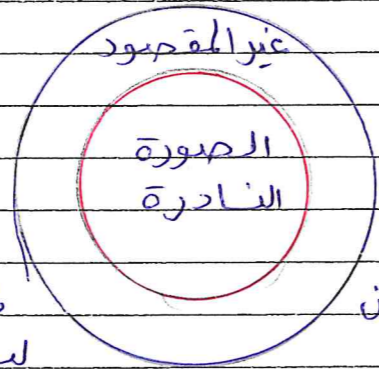 غير المقصود
الصورة
النادرة